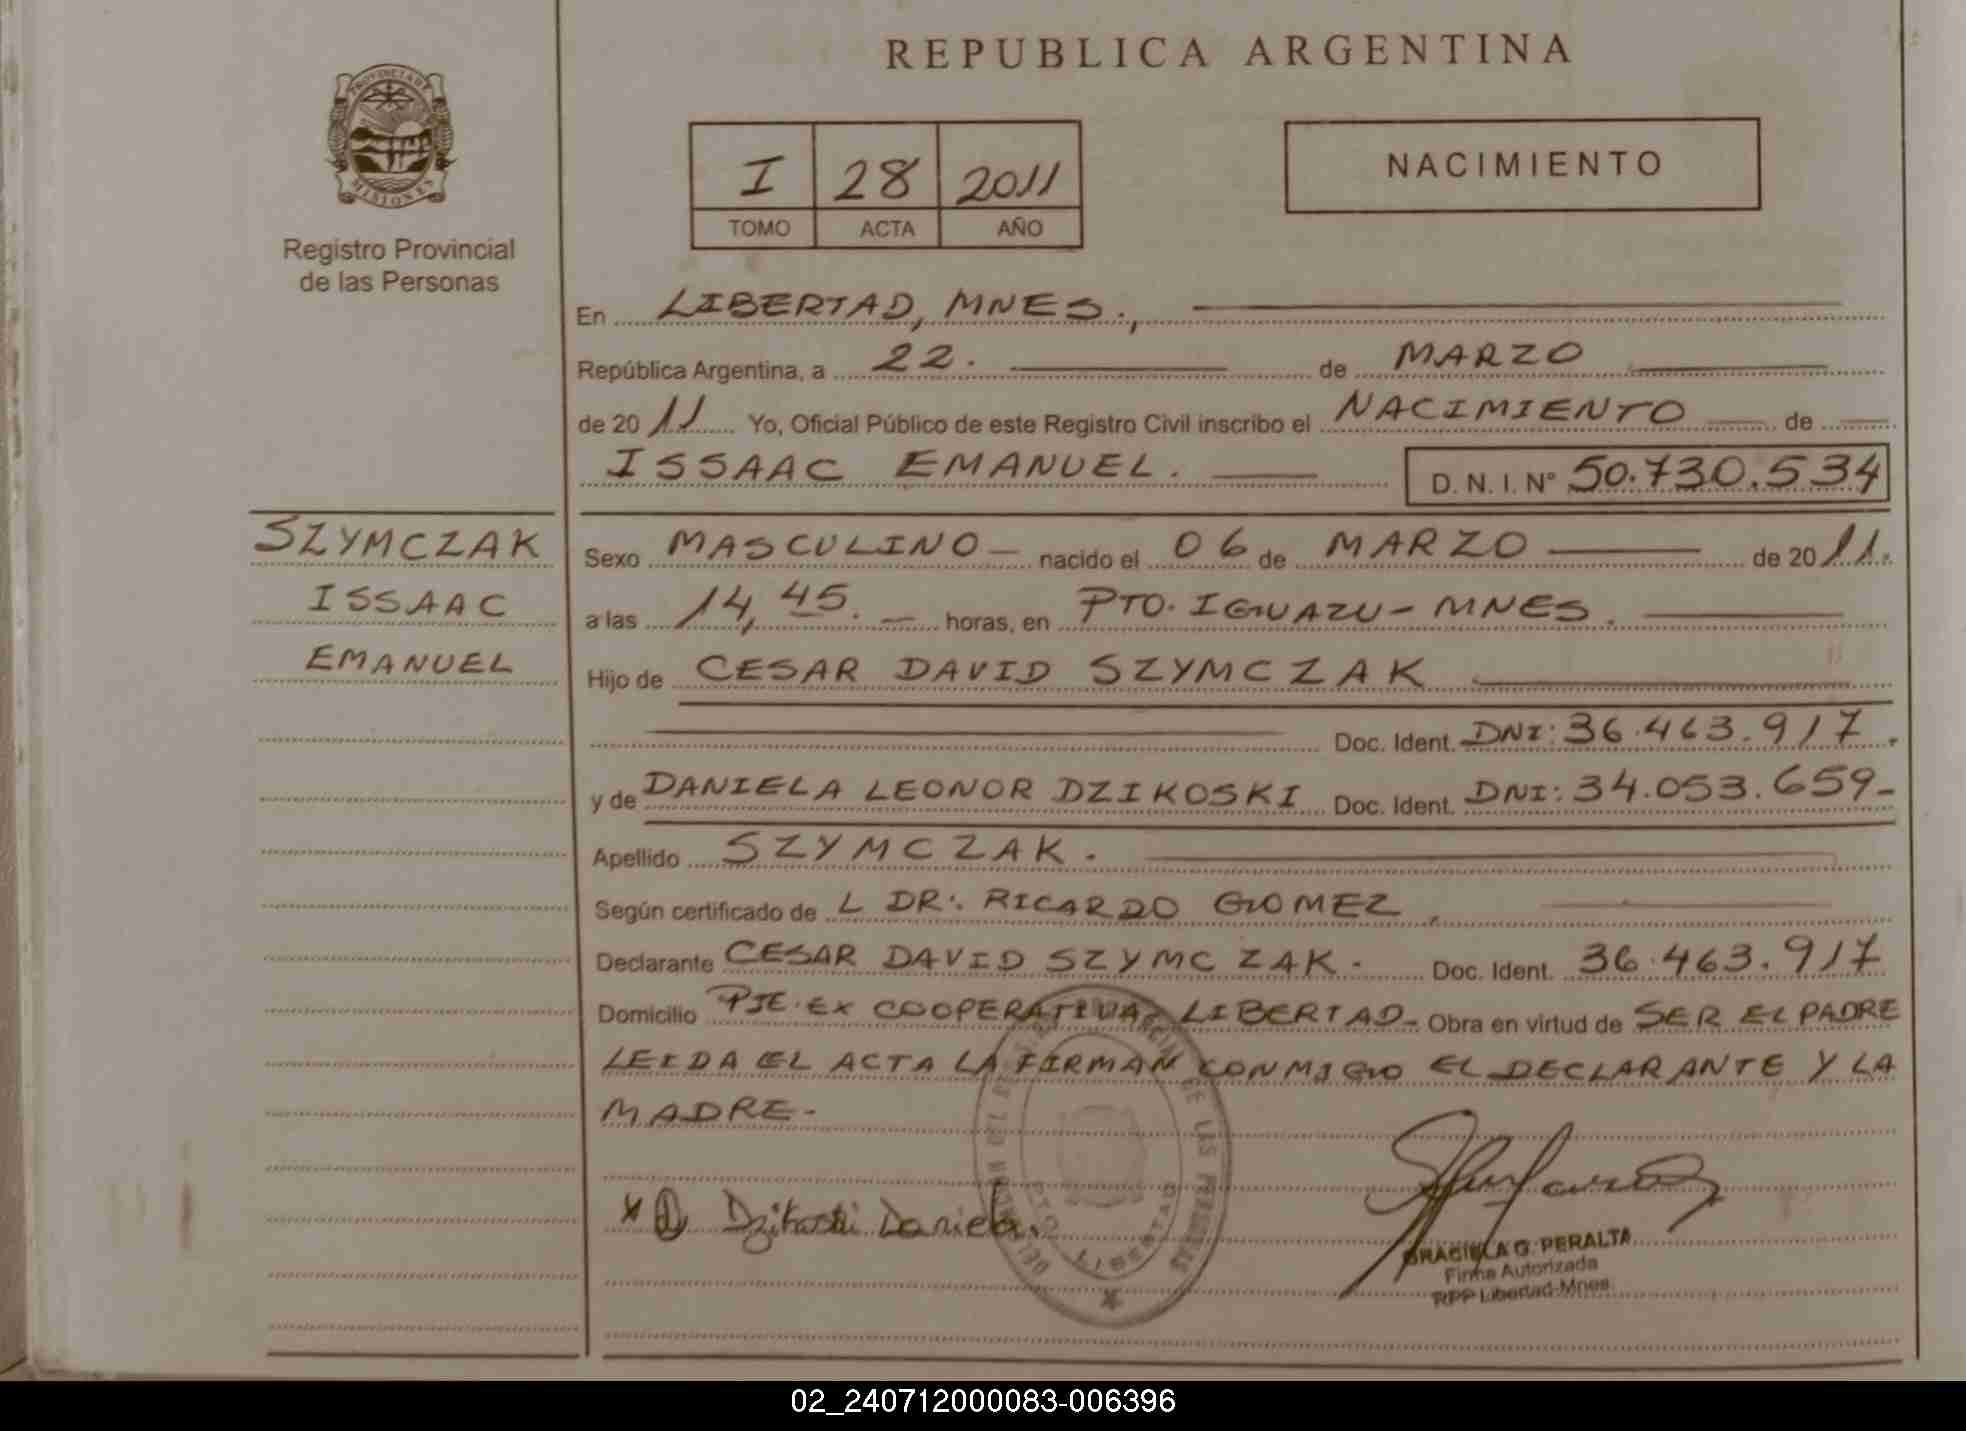 REPUBLICA ARGENTINA
PROVINCIA DE
MISIONES
Registro Provincial
de las Personas
I 28 2011
TOMO ACTA AÑO
NACIMIENTO
En LIBERTAD, MNES.,
República Argentina, a 22. de MARZO
de 2011 Yo, Oficial Público de este Registro Civil inscribo el NACIMIENTO de
ISSAAC EMANUEL. D. N. I. N° 50.730.534
SZYMCZAK
ISSAAC
EMANUEL
Sexo MASCULINO nacido el 06 de MARZO de 2011.
a las 14,45. horas, en PTO. IGUAZU - MNES.
Hijo de CESAR DAVID SZYMCZAK
Doc. Ident. DNI: 36.463.917.
y de DANIELA LEONOR DZIKOSKI Doc. Ident. DNI: 34.053.659-
Apellido SZYMCZAK.
Según certificado de L DR. RICARDO GOMEZ
Declarante CESAR DAVID SZYMCZAK. Doc. Ident. 36.463.917
Domicilio PJE. EX COOPERATIVA - LIBERTAD - Obra en virtud de SER EL PADRE
LEIDA EL ACTA LA FIRMAN CONMIGO EL DECLARANTE Y LA
MADRE.-
Dzikoski Daniela.
DE LAS PERSONAS
PTO. LIBERTAD
GRACIELA G. PERALTA
Firma Autorizada
RPP Libertad-Mnes.
02_240712000083-006396